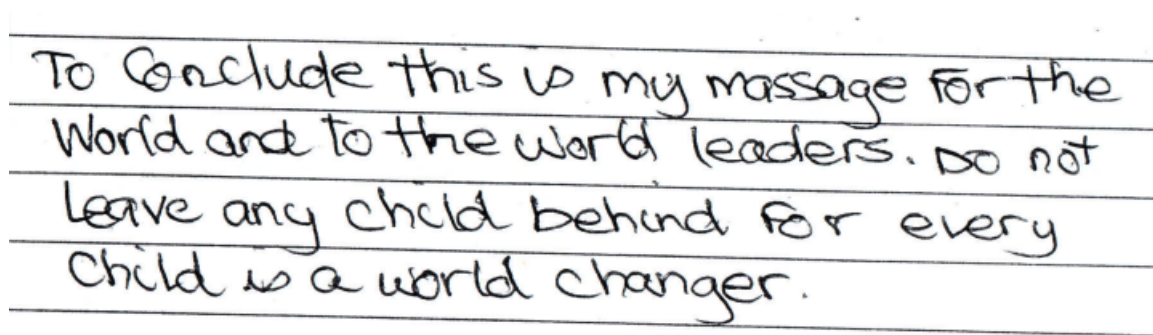 To Conclude this is my massage For the
World and to the world leaders. Do not
Leave any child behind For every
Child is a world changer.